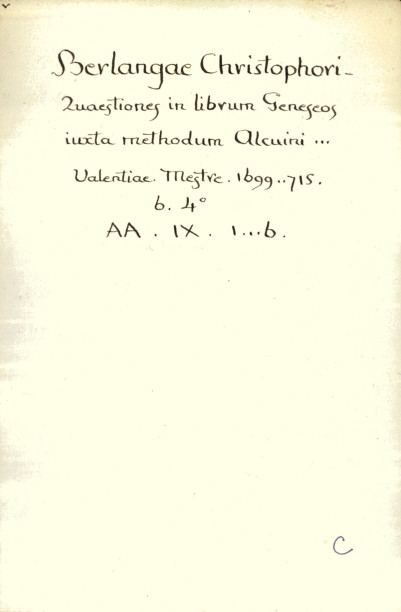 Berlangae Christophori-
Quaestiones in librum Geneseos
iuxta methodum Alcuini ...
Valentiae. Mestre. 1699..715.
6. 4°
AA. IX. 1...6.
C